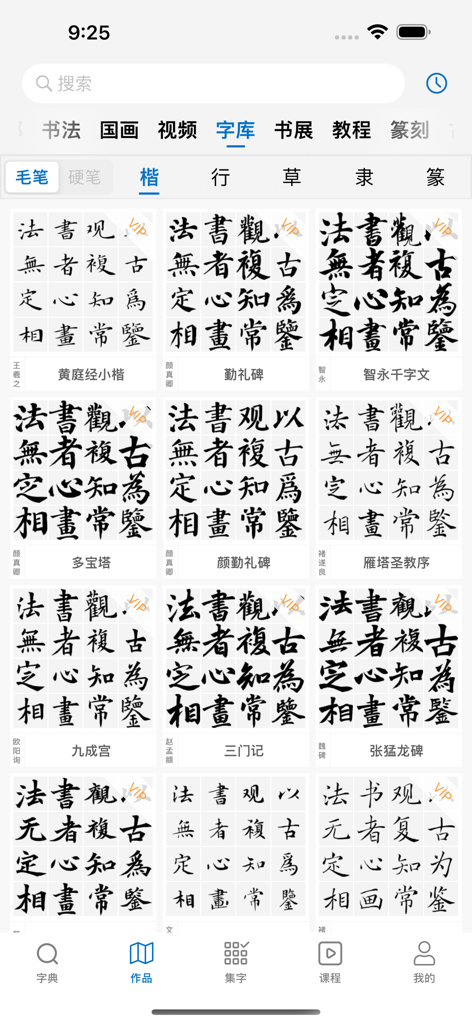 9:25
搜索
书法 国画 视频 字库 书展 教程 篆刻
毛笔 硬笔 楷 行 草 隶 篆
法書观 VIP
無者複古
定心知爲
相畫常鑒
王羲之 黄庭经小楷
法書觀 VIP
無者複古
定心知爲
相畫常鑒
颜真卿 勤礼碑
法書觀 VIP
無者複古
定心知為
相畫常鑒
智永 智永千字文
法書觀 VIP
無者複古
定心知為
相畫常鑒
颜真卿 多宝塔
法書观以
無者複古
定心知爲
相畫常鑒
颜真卿 颜勤礼碑
法書觀 VIP
无者複古
定心知為
相畫常鑒
褚遂良 雁塔圣教序
法書觀 VIP
無者複古
定心知為
相畫常鑒
欧阳询 九成宫
法書觀 VIP
無者複古
定心知為
相畫常鑒
赵孟頫 三门记
法書觀 VIP
無者複古
定心知為
相畫常鑒
魏碑 张猛龙碑
法書觀 VIP
无者複古
定心知爲
相畫常鑒
法書观以
無者複古
定心知爲
相畫常鑒
文
法书观 VIP
无者复古
定心知为
相画常鉴
褚
字典 作品 集字 课程 我的